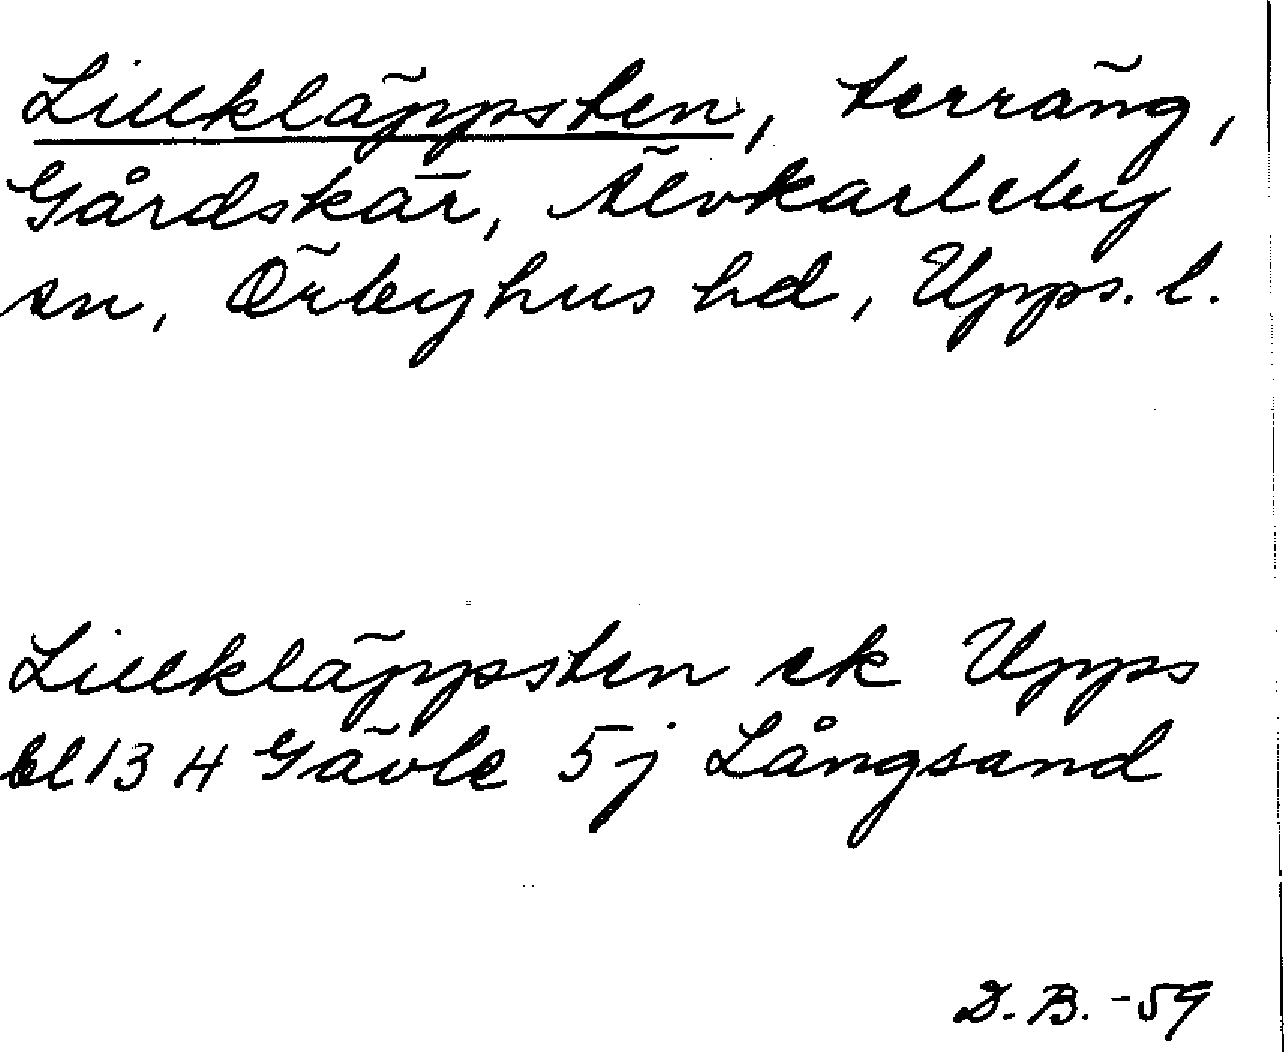 Lillkläppsten, terräng,
Gårdskär, Älvkarleby
sn, Örbyhus hd, Upps. l.
Lillkläppsten ek Upps
bl 13 H Gävle 5j Långsand
D. B. -59